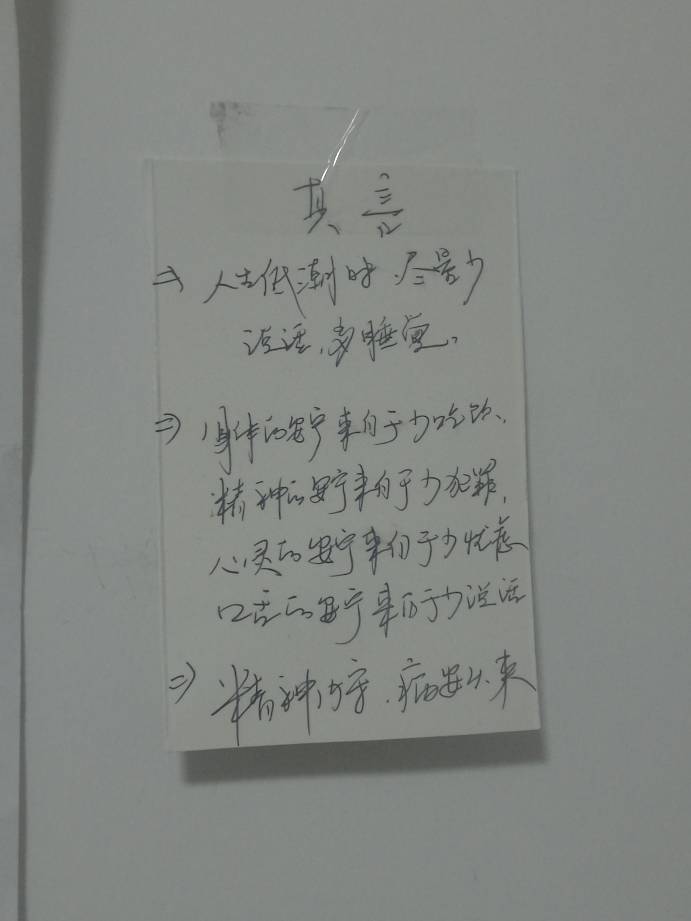 真言
⇒ 人生低潮时.尽量少
说话,多睡觉。
⇒ 身体的安宁来自于少吃饭、
精神的安宁来自于少犯罪,
心灵的安宁来自于少忧虑
口舌的安宁来自于少说话
⇒ 精神内守.病安从来